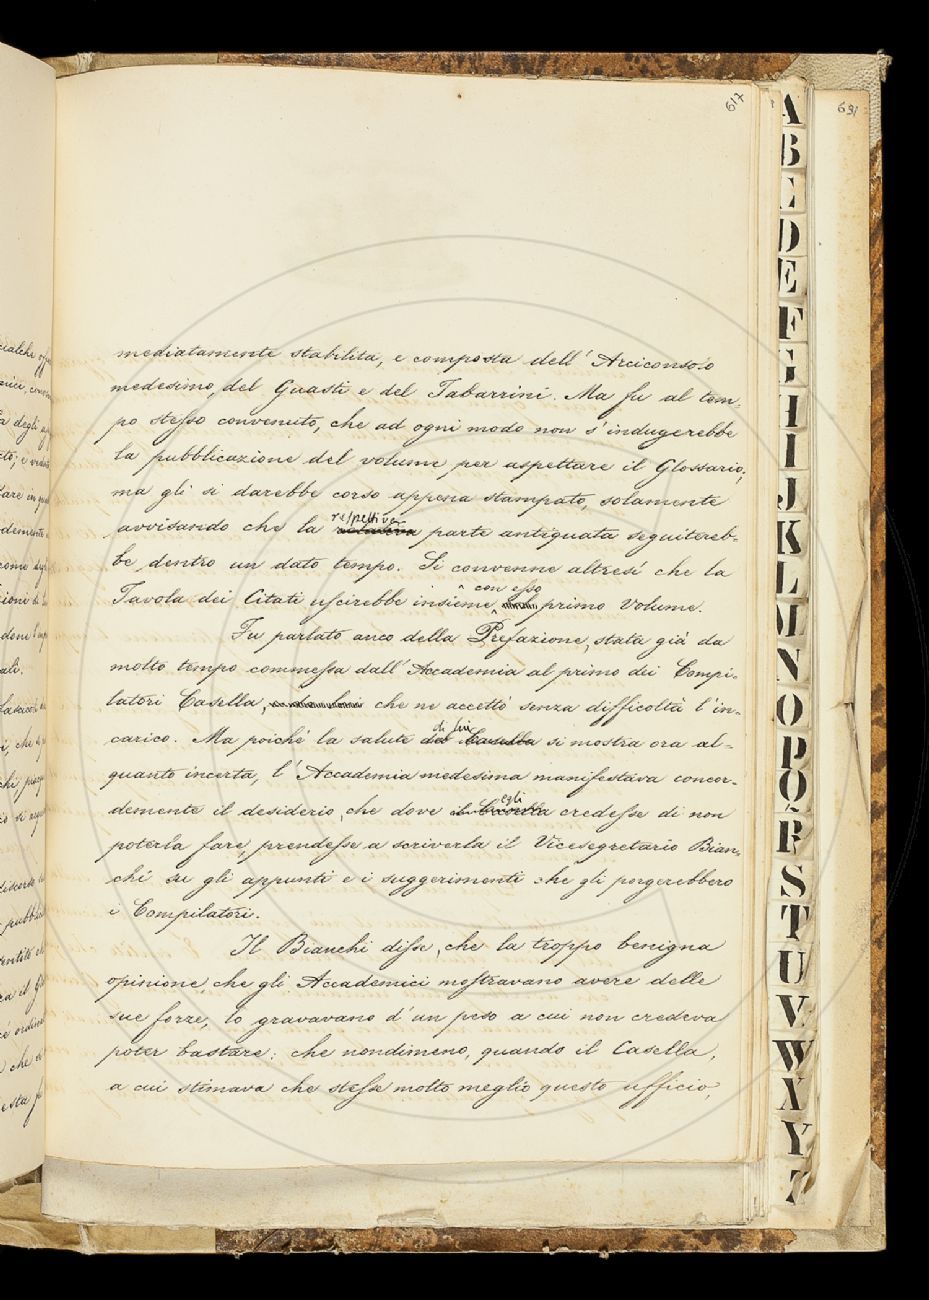 617
631
mediatamente stabilita, e composta dell' Arciconsolo
medesimo, del Guasti e del Tabarrini. Ma fu al tem-
po stesso convenuto, che ad ogni modo non s'indugerebbe
la pubblicazione del volume per aspettare il Glossario;
ma gli si darebbe corso appena stampato, solamente
avvisando che la respettiva parte antiquata seguitereb-
be, dentro un dato tempo. Si convenne altresì che la
Tavola dei Citati uscirebbe insieme con esso primo Volume.
Fu parlato anco della Prefazione, stata già da
molto tempo commessa dall' Accademia al primo dei Compi-
latori Casella, che ne accettò senza difficoltà l'in-
carico. Ma poichè la salute di lui del Casella si mostra ora al-
quanto incerta, l' Accademia medesima manifestava concor-
demente il desiderio, che dove egli il Casella credesse di non
poterla fare, prendesse a scriverla il Vicesegretario Bian-
chi su gli appunti e i suggerimenti che gli porgerebbero
i Compilatori.
Il Bianchi disse, che la troppo benigna
opinione che gli Accademici mostravano avere delle
sue forze, lo gravavano d'un peso a cui non credeva
poter bastare: che nondimeno, quando il Casella,
a cui stimava che stesse molto meglio questo ufficio,
A
B
C
D
E
F
G
H
I
J
K
L
M
N
O
P
Q
R
S
T
U
V
W
X
Y
Z